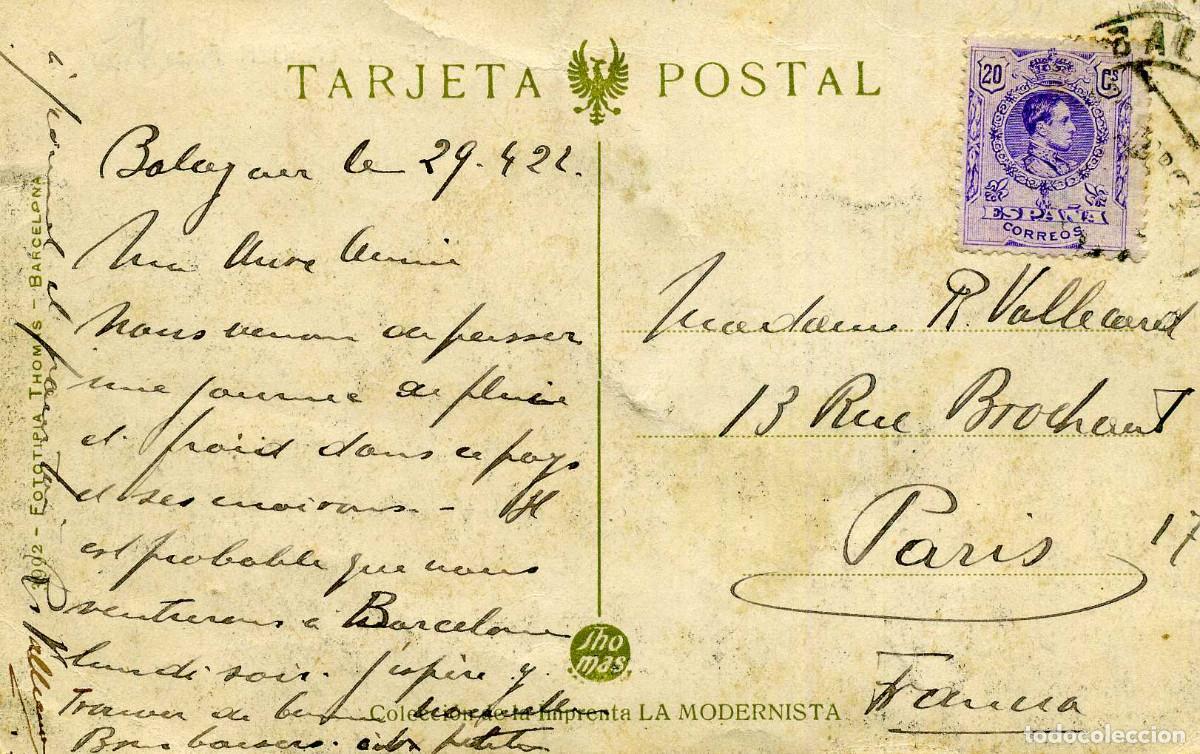 TARJETA POSTAL
Balaguer le 29.4.22.
Ma chère Annie
Nous venons de passer
une journée de pluie
et froid dans ce pays
et ses environs - Il
est probable que nous
rentrerons à Barcelone
lundi soir. J'espère y
trouver de bonnes nouvelles
Bons baisers aux petites
R Vallecard
3992 - FOTOTIPIA THOMAS - BARCELONA
20 Cs
ESPAÑA
CORREOS
BAL
Madame R. Vallecard
13 Rue Brochant
Paris 17
Francia
Thomas.
Colección de la Imprenta LA MODERNISTA
todocoleccion